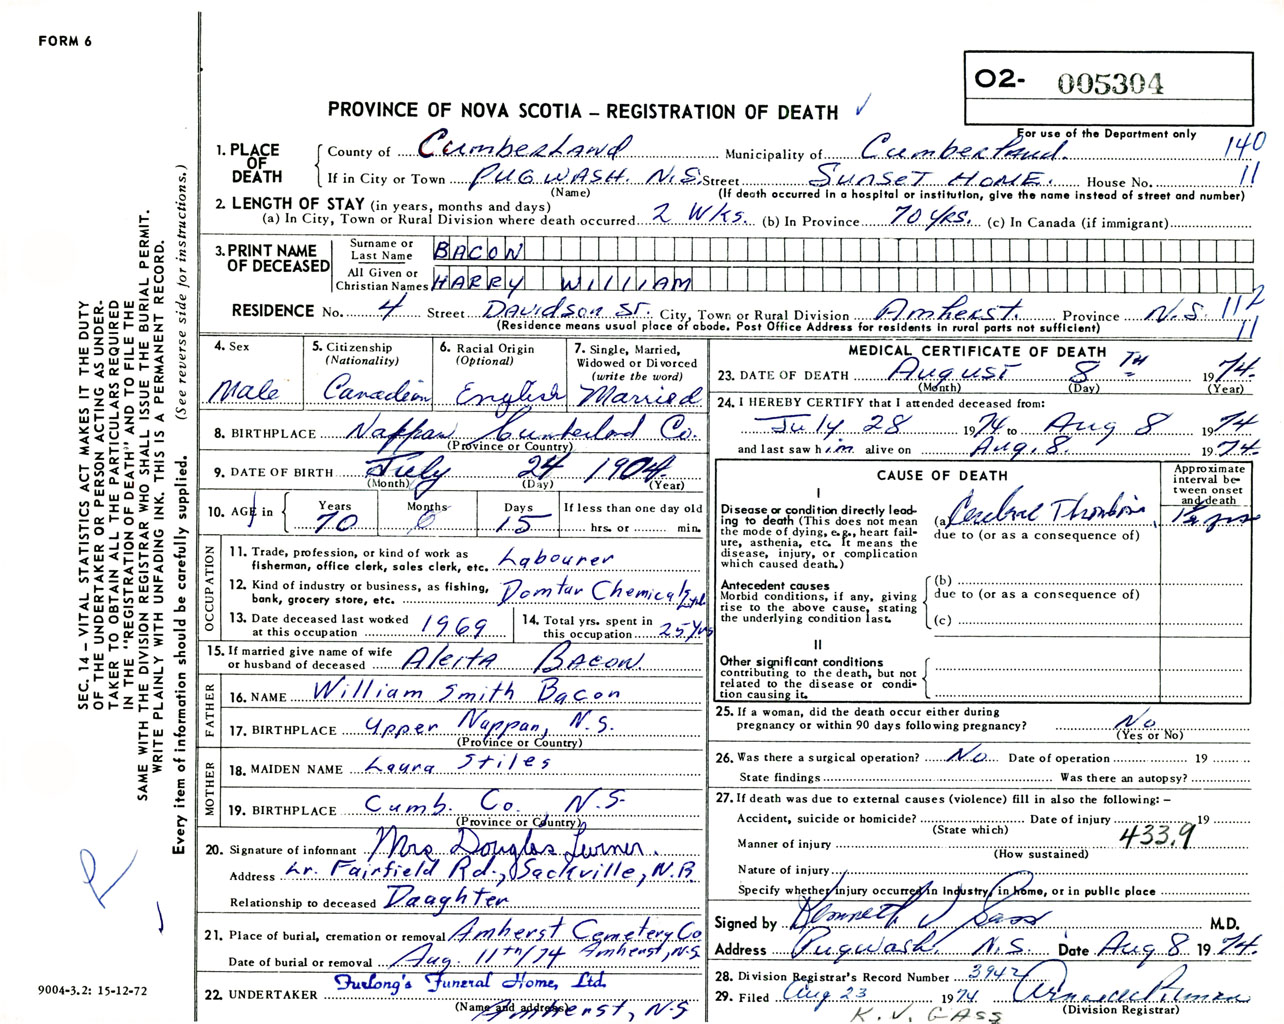 FORM 6
O2- 005304
PROVINCE OF NOVA SCOTIA – REGISTRATION OF DEATH
For use of the Department only
140
11
1. PLACE OF DEATH
County of Cumberland Municipality of Cumberland
If in City or Town PUGWASH. N.S. Street SUNSET HOME. House No.
(Name) (If death occurred in a hospital or institution, give the name instead of street and number)
2. LENGTH OF STAY (in years, months and days)
(a) In City, Town or Rural Division where death occurred 2 Wks. (b) In Province 70 yrs. (c) In Canada (if immigrant)
3. PRINT NAME OF DECEASED
Surname or Last Name BACON
All Given or Christian Names HARRY WILLIAM
RESIDENCE No. 4 Street Davidson St. City, Town or Rural Division Amherst. Province N.S. 112
11
(Residence means usual place of abode. Post Office Address for residents in rural parts not sufficient)
4. Sex
Male
5. Citizenship
(Nationality)
Canadian
6. Racial Origin
(Optional)
English
7. Single, Married,
Widowed or Divorced
(write the word)
Married
8. BIRTHPLACE Nappan Cumberland Co.
(Province or Country)
9. DATE OF BIRTH July 24 1904.
(Month) (Day) (Year)
10. AGE in Years Months Days If less than one day old
70 0 15 hrs. or min.
OCCUPATION
11. Trade, profession, or kind of work as
fisherman, office clerk, sales clerk, etc. Labourer
12. Kind of industry or business, as fishing,
bank, grocery store, etc. Domtar Chemicals Ltd
13. Date deceased last worked
at this occupation 1969
14. Total yrs. spent in
this occupation 25 yrs
15. If married give name of wife
or husband of deceased Aleita BACON
FATHER
16. NAME William Smith Bacon
17. BIRTHPLACE Upper Nappan, N.S.
(Province or Country)
MOTHER
18. MAIDEN NAME Laura Stiles
19. BIRTHPLACE Cumb. Co. N.S.
(Province or Country)
20. Signature of informant Mrs Douglas Turner.
Address Lr. Fairfield Rd., Sackville, N.B.
Relationship to deceased Daughter
21. Place of burial, cremation or removal Amherst Cemetery Co
Amherst, N.S.
Date of burial or removal Aug. 11th/74
22. UNDERTAKER Furlong's Funeral Home, Ltd.
(Name and address) Amherst, N.S
MEDICAL CERTIFICATE OF DEATH
23. DATE OF DEATH August 8 TH 1974.
(Month) (Day) (Year)
24. I HEREBY CERTIFY that I attended deceased from:
July 28 1974 to Aug 8 1974
and last saw him alive on Aug. 8. 1974.
CAUSE OF DEATH
Approximate
interval be-
tween onset
and death
I
Disease or condition directly lead-
ing to death (This does not mean
the mode of dying, e.g., heart fail-
ure, asthenia, etc. It means the
disease, injury, or complication
which caused death.)
(a) Cerebral Thrombosis
due to (or as a consequence of)
Antecedent causes
Morbid conditions, if any, giving
rise to the above cause, stating
the underlying condition last.
(b)
due to (or as a consequence of)
(c)
II
Other significant conditions
contributing to the death, but not
related to the disease or condi-
tion causing it.
25. If a woman, did the death occur either during
pregnancy or within 90 days following pregnancy? No
(Yes or No)
26. Was there a surgical operation? No Date of operation 19
State findings Was there an autopsy?
27. If death was due to external causes (violence) fill in also the following: –
Accident, suicide or homicide? Date of injury 19
(State which)
433.9
Manner of injury
(How sustained)
Nature of injury
Specify whether injury occurred in Industry, in home, or in public place
Signed by Kenneth V Gass M.D.
Address Pugwash. N.S. Date Aug 8 1974.
28. Division Registrar's Record Number 3942
29. Filed Aug 23 1974
(Division Registrar)
K. V. GASS
SEC. 14 – VITAL STATISTICS ACT MAKES IT THE DUTY
OF THE UNDERTAKER OR PERSON ACTING AS UNDER-
TAKER TO OBTAIN ALL THE PARTICULARS REQUIRED
IN THE "REGISTRATION OF DEATH" AND TO FILE THE
SAME WITH THE DIVISION REGISTRAR WHO SHALL ISSUE THE BURIAL PERMIT.
WRITE PLAINLY WITH UNFADING INK. THIS IS A PERMANENT RECORD.
Every item of information should be carefully supplied. (See reverse side for instructions.)
9004-3.2: 15-12-72